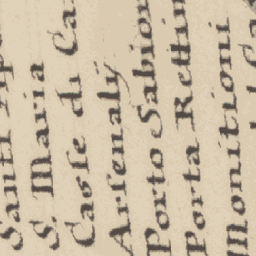 Santi Ap
S. Maria
Casse di Ca
Arsenalÿ
Porto Sabion
Porta Rettim
Monitioni